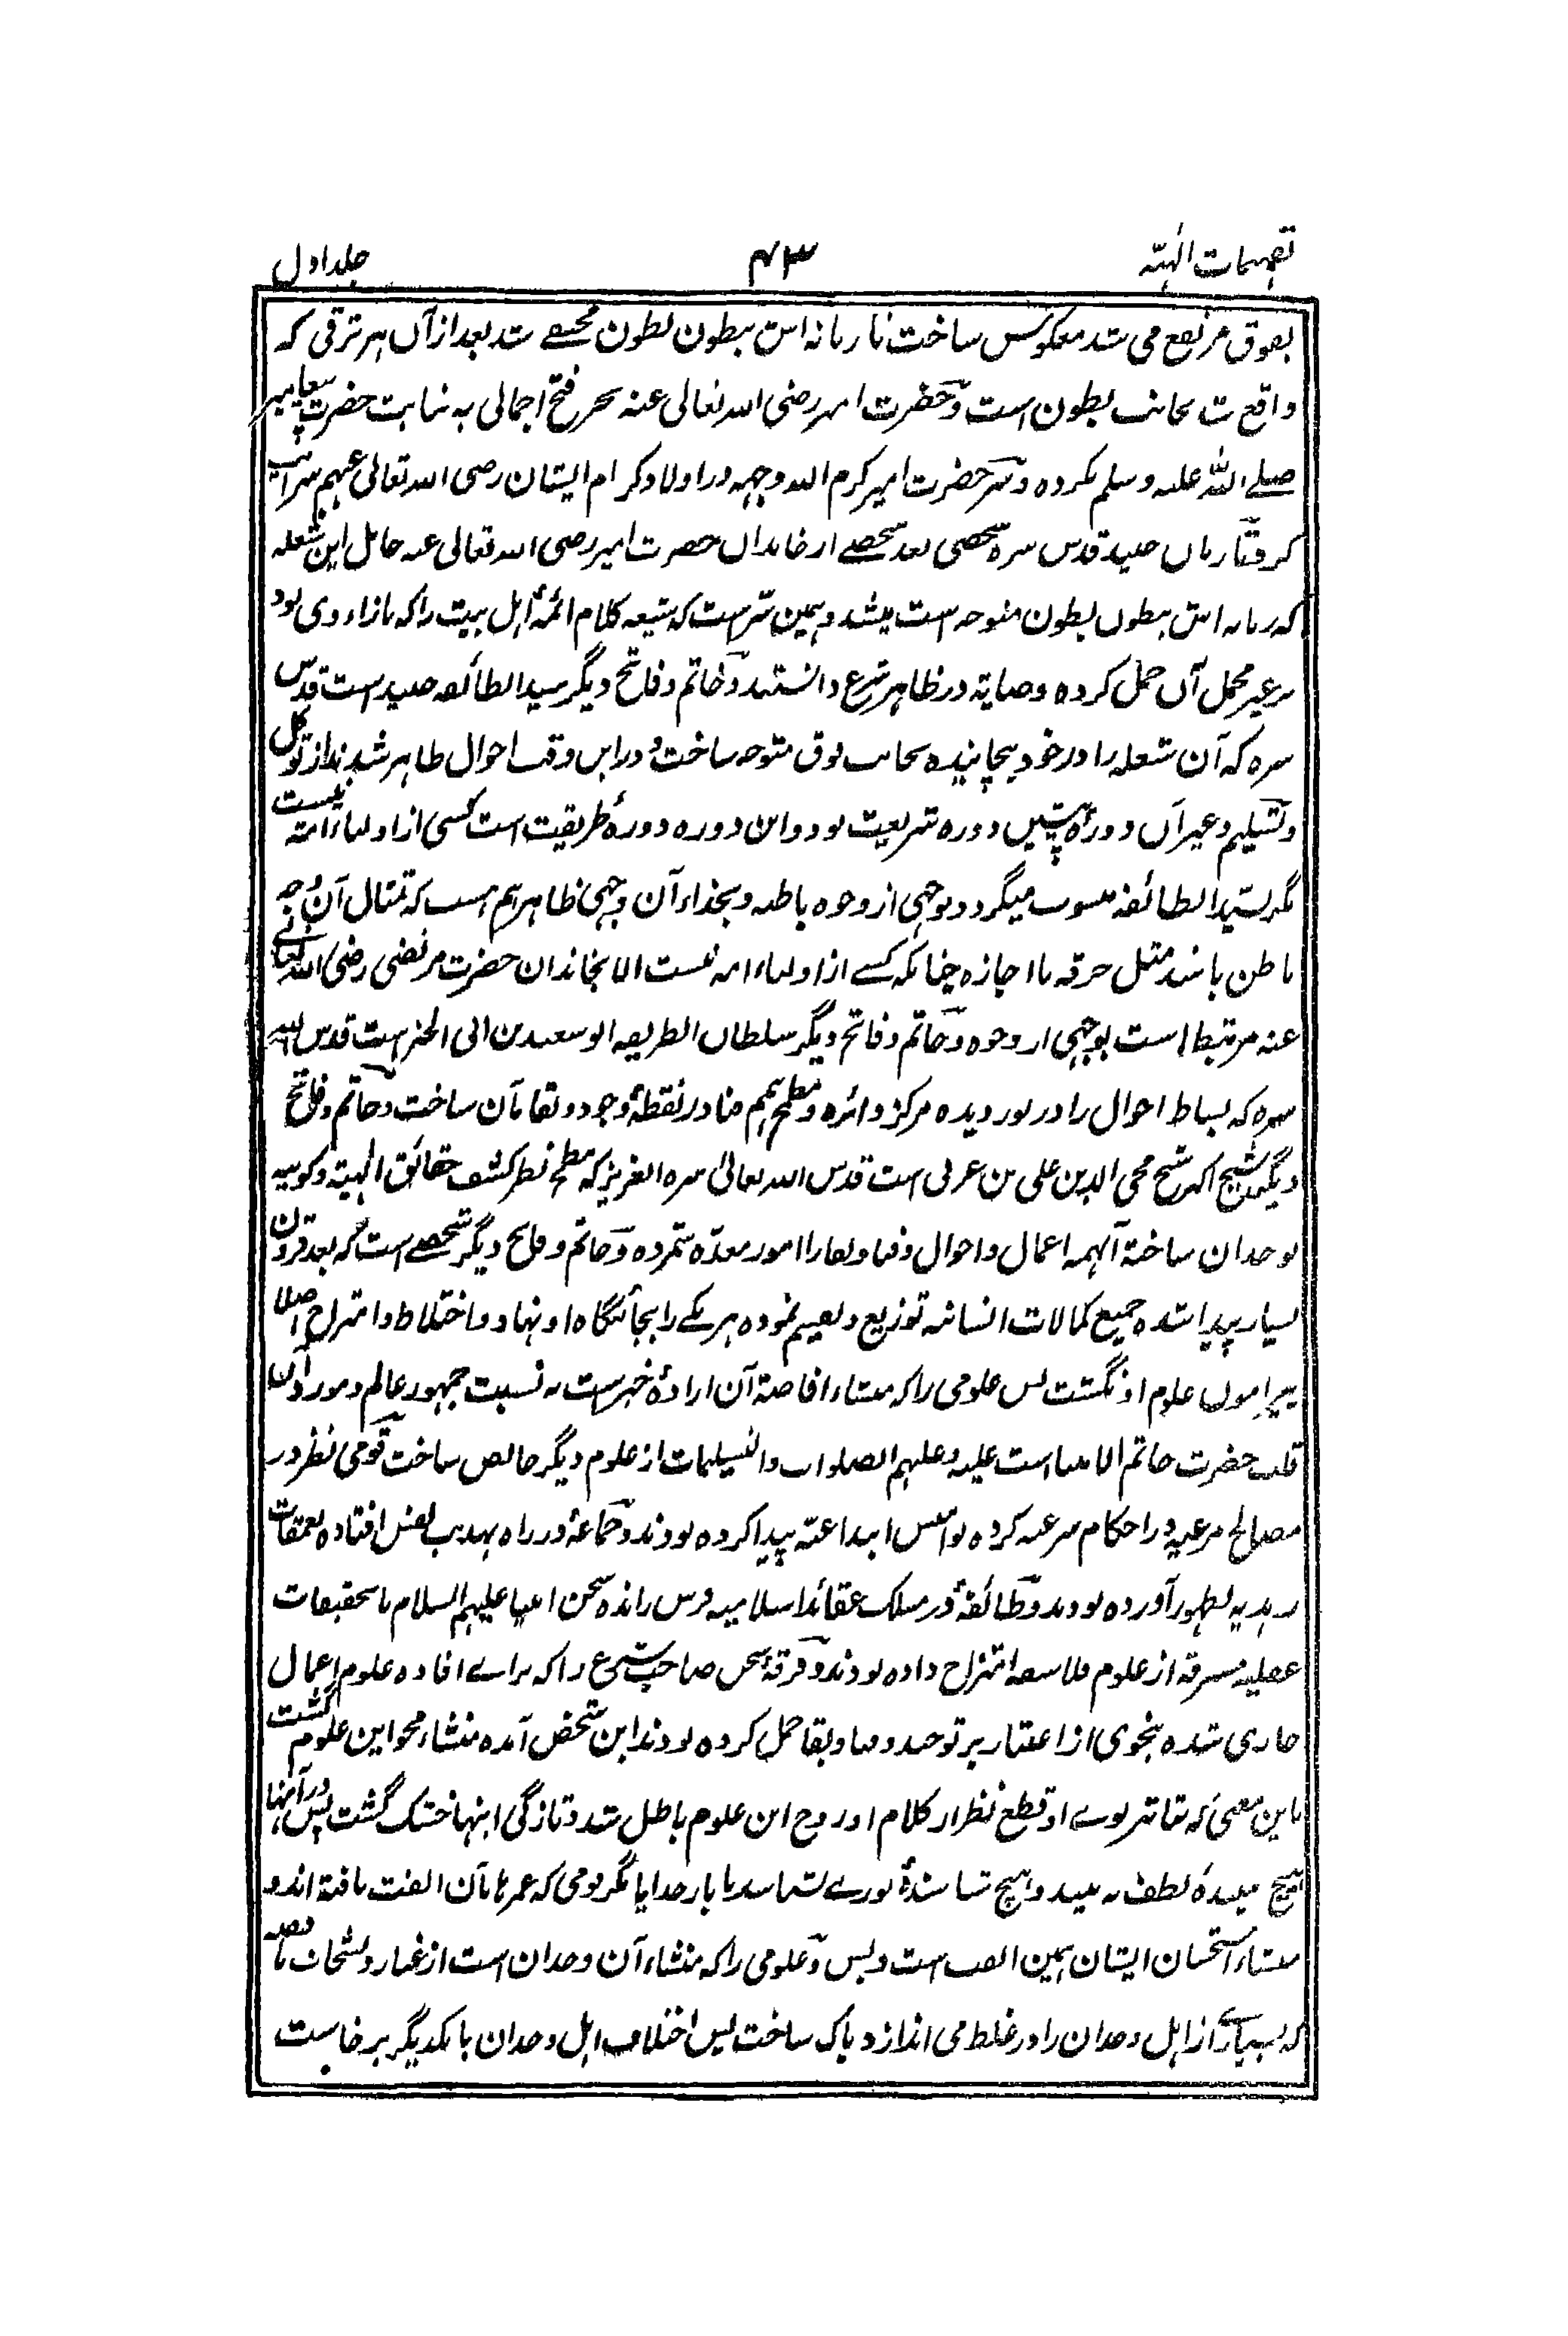 تفہیمات الٰہیہ ۴۳ جلد اول
بفوق مرتفع می شد معکوس ساخت تا زبانه اش ببطون بطون مختفے شد بعد از آں ہر ترقی که
واقع ست بجانب بطون است و حضرت امیر رضی الله تعالی عنه بحر فتح اجمالی به نیابت حضرت پیغامبر
صلے الله علیه وسلم نکرده و سر حضرت امیر کرم الله وجہه در اولاد کرام ایشان رضی الله تعالی عنہم سرایت
کرد تا زمان جنید قدس سره شخصی بعد شخصے از خاندان حضرت امیر رضی الله تعالی عنه حامل این شعله
که زبانه اش ببطون بطون متوجه است میشد و ہمین سرست که شیعه کلام ائمۂ اہل بیت را که بازاء وی بود
بر غیر محمل آں حمل کرده وصایة در ظاہر شرع دانستند و خاتم و فاتح دیگر سید الطائفه جنید است قدس
سره که آن شعله را در خود پیچانیده بجانب فوق متوجه ساخت و در این وقت احوال ظاہر شدند از توکل
و تسلیم و غیر آں دورۂ پیشیں دوره شریعت بود و این دوره دورۂ طریقت است کسی از اولیاء امة نیست
مگر بسید الطائفه منسوب میگردد بوجہی از وجوه باطنه و بحذاء آن وجہی ظاہر ہم است که تمثال آن وجه
باطن باشد مثل خرقه یا اجازه چنانکه کسے از اولیاء امه نیست الا بخاندان حضرت مرتضی رضی الله تعالے
عنه مرتبط است بوجہی از وجوه و خاتم و فاتح دیگر سلطان الطریقه ابو سعید بن ابی الخیر است قدس الله
سره که بساط احوال را در نوردیده مرکز دائره و مطمح ہمم فنا در نقطۂ وجود و بقا بآن ساخت و خاتم و فاتح
دیگر شیخ اکبر شیخ محی الدین علی بن عربی است قدس الله تعالیٰ سره العزیز که مطمح نظر کشف حقائق الٰہیة و کونیه
بوجدان ساخته آنہمه اعمال و احوال و فنا و بقا را امور معدّه شمرده و خاتم و فاتح دیگر شخصے است که بعد قرون
بسیار پیدا شده جمیع کمالات انسانیه توزیع و تقسیم نموده ہر یکے را بجائگاه او نہاد و اختلاط و امتزاج اصلا
پیرامون علوم او نگشت پس علومی را که منشاء افاضة آن ارادۂ خیرست به نسبت جمہور عالم و مورد آں
قلب حضرت خاتم الانبیا است علیه و علیہم الصلوات و التسلیمات از علوم دیگر خالص ساخت قومی نظر در
مصالح مرعیه در احکام شرعیه کرده نوامیس ابداعیه پیدا کرده بودند و جماعۂ در راه تہذیب نفس افتاده تعمقات
رہدیه بظہور آورده بودند و طائفۂ در مسلک عقائد اسلامیه فرس رانده سخن انبیا علیہم السلام با تحقیقات
عقلیه مسرقه از علوم فلاسفه امتزاج داده بودند و فرقۂ سخن صاحب شرع را که براے افاده علوم اعمال
جاری شده بنحوی از اعتبار بر توحید و فنا و بقا حمل کرده بودند این شخص آمده منشاء محو این علوم گشت
باین معنی که بتاثیر بوے او قطع نظر از کلام او روح این علوم باطل شد و تازگی اینہا خشک گشت پس در آنہا
ہیچ بینندۂ لطف نه بیند و ہیچ شناسندۂ نورے نشناسد بار خدایا مگر قومی که عمرہا بآن الفت یافته اند و
منشاء استحسان ایشان ہمین الف است و بس و علومی را که منشاء آن وجدان است از غبار و شبحات
که بسیارے از اہل وجدان را در غلط می اندازد پاک ساخت پس اختلاف اہل وجدان با یکدیگر برخاست